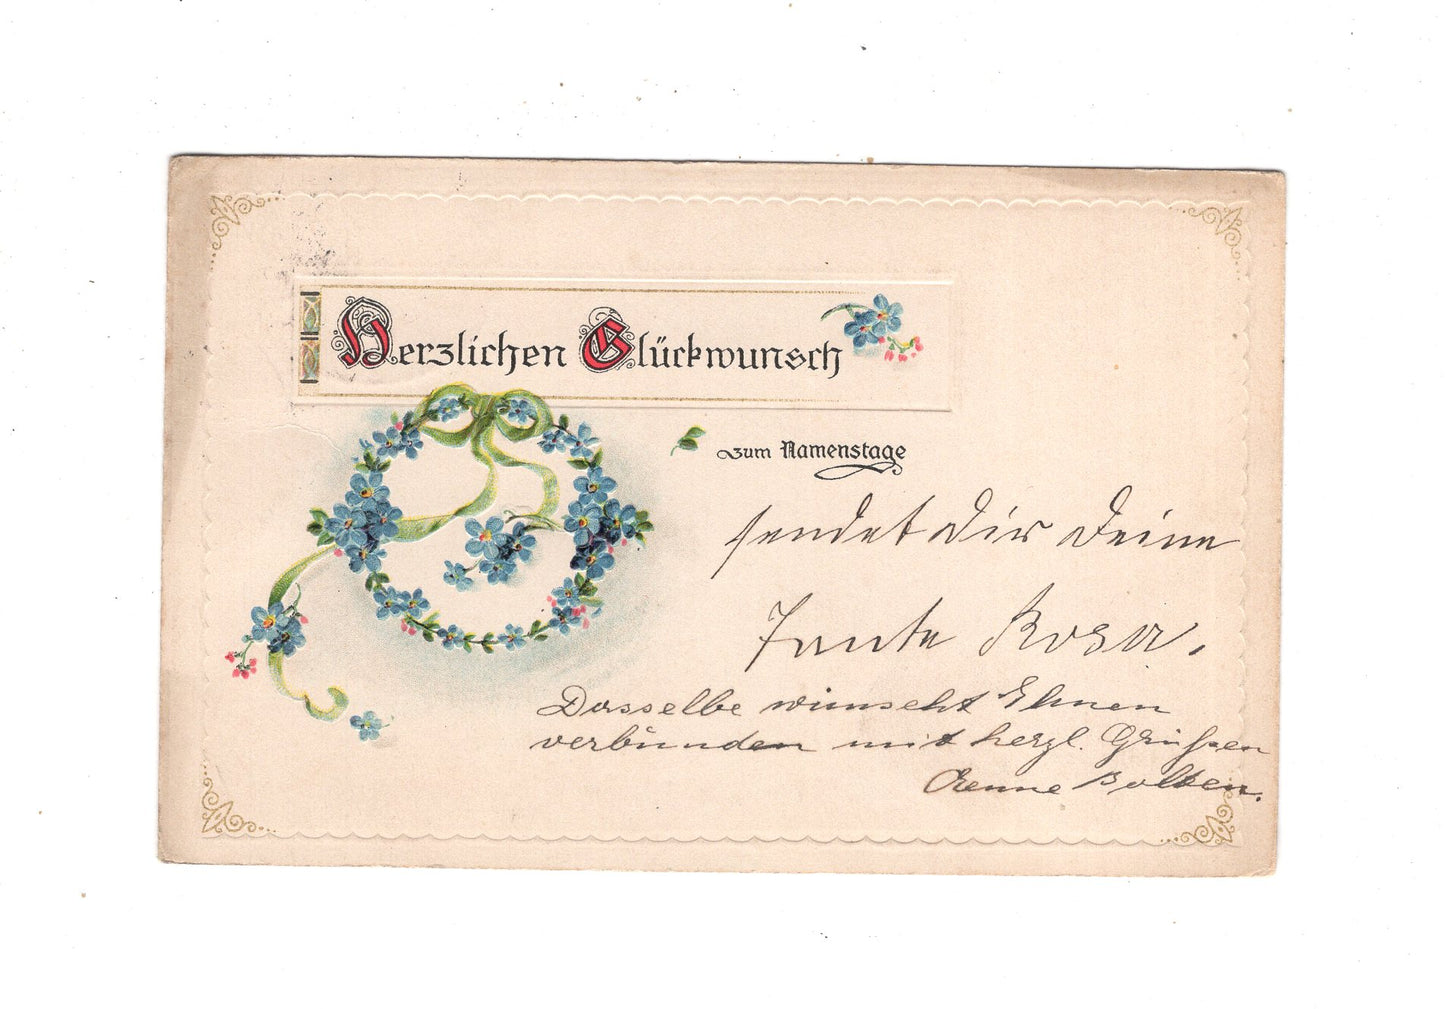 Herzlichen Glückwunsch
zum Namenstage
sendet Dir Deine
Tante Rosa.
Dasselbe wünscht Ihnen
verbunden mit herzl. Grüßen
Aenne Bolten.